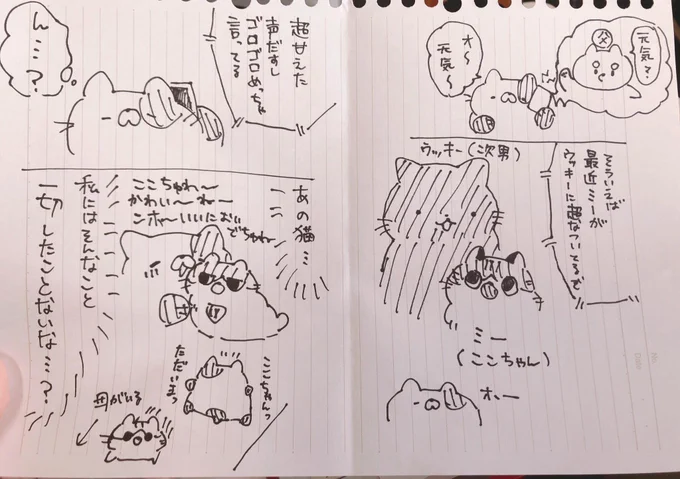 元気？
父
オ〜
元気〜
そういえば
最近ミーが
ウッキーに超なついてるで
ウッキー(次男)
ミー
(ここちゃん)
オー
超甘えた
声だすし
ゴロゴロめっちゃ
言ってる
ん…？
あの猫…
ここちゃわ〜
かわい〜ね〜
ンホ〜いいにおい
でちゅね
私にはそんなこと
一切したことないな…？
ここちゃんっ
ただいまっ
母がいる